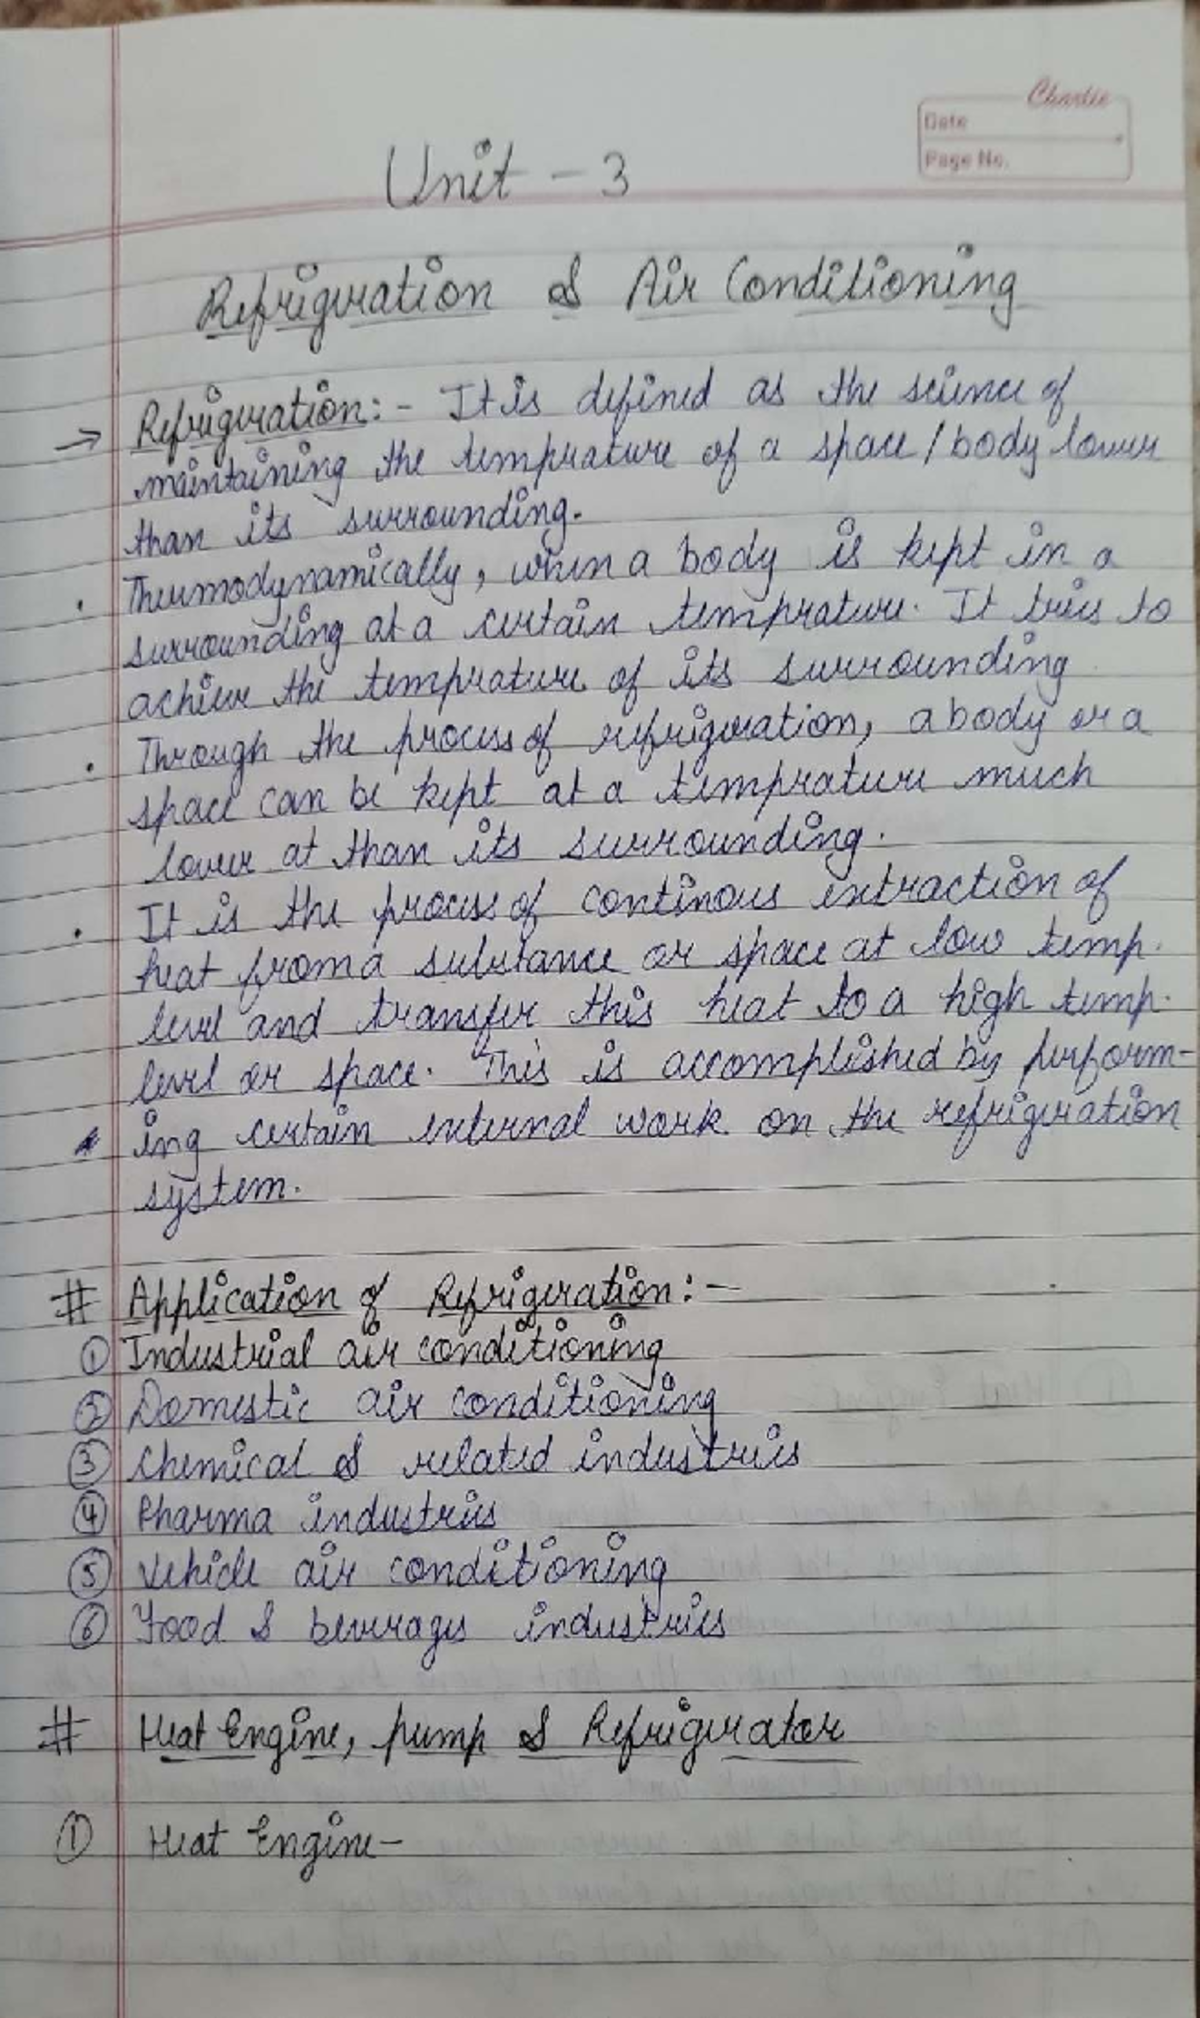 Charlie
Date
Page No.
Unit - 3
Refrigeration & Air Conditioning
→ Refrigeration:- It is defined as the science of
maintaining the temprature of a space/body lower
than its surrounding.
. Thermodynamically, when a body is kept in a
surrounding at a certain temprature. It tries to
achieve the temprature of its surrounding
. Through the process of refrigeration, a body or a
space can be kept at a temprature much
lower at than its surrounding.
. It is the process of continous extraction of
heat from a substance or space at low temp.
level and transfer this heat to a high temp.
level or space. This is accomplished by perform-
ing certain external work on the refrigeration
system.
# Application of Refrigeration:-
① Industrial air conditioning
② Domestic air conditioning
③ Chemical & related industries
④ Pharma industries
⑤ Vehicle air conditioning
⑥ Food & beverages industries
# Heat Engine, pump & Refrigerator
① Heat Engine-